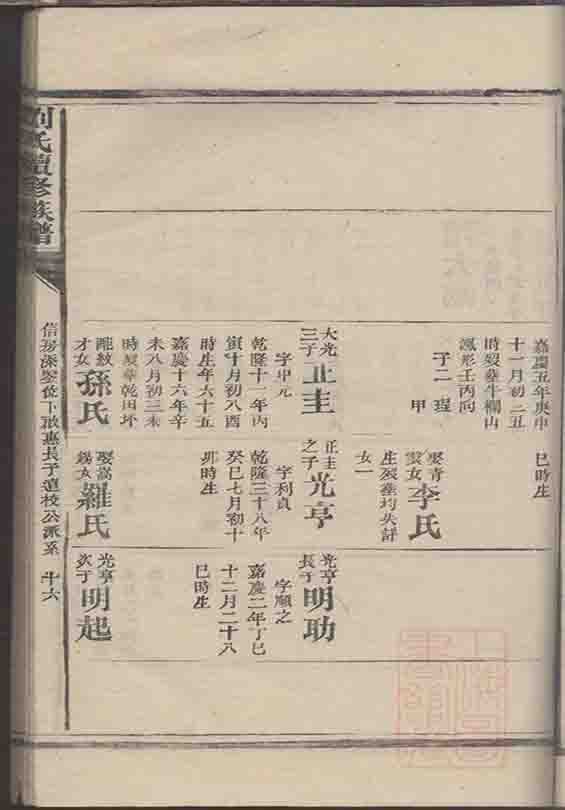 嘉慶五年庚申
十一月初二丑
時歿葬牛欄山
鳳形壬丙向
子二 珵
甲
大光三子
正圭
字中元
乾隆十一年丙
寅十月初八酉
時生年六十五
嘉慶十六年辛
未八月初三未
時歿葬乾田坏
配紋才女
孫氏
巳時生
娶青雲女
李氏
生歿葬均失詳
女一
正圭之子
光亨
字利貞
乾隆三十八年
癸巳七月初十
卯時生
娶嵩錫女
羅氏
光亨長子
明助
字順之
嘉慶二年丁巳
十二月二十八
巳時生
光亨次子
明起
劉氏續修族譜
信房深翠位下啟惠長子道校公派系 卄六